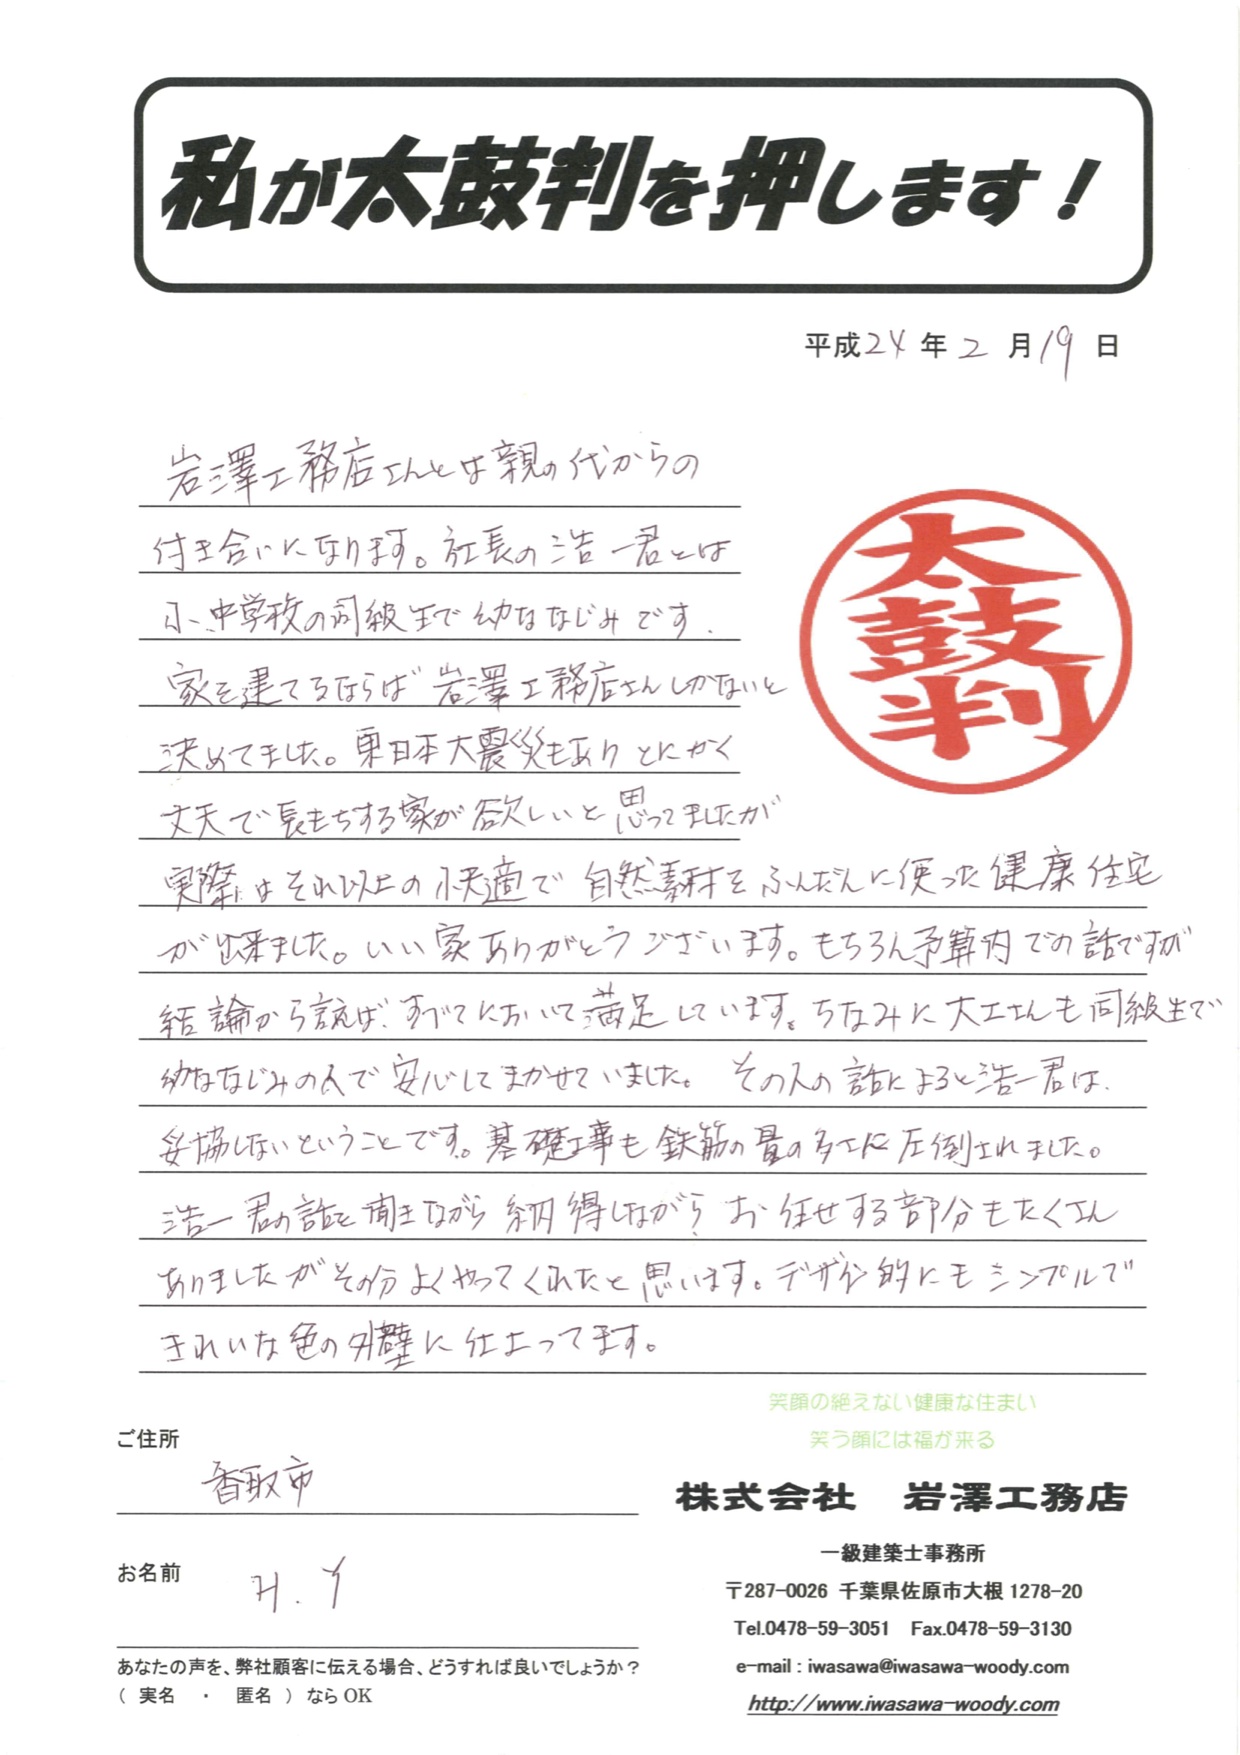 私が太鼓判を押します！
平成24年2月19日
岩澤工務店さんとは親の代からの
付き合いになります。社長の浩一君とは
小、中学校の同級生で幼ななじみです、
家を建てるならば岩澤工務店さんしかないと
決めてました。東日本大震災もありとにかく
丈夫で長もちする家が欲しいと思ってましたが
太鼓判
実際はそれ以上の快適で自然素材をふんだんに使った健康住宅
が出来ました。いい家ありがとうございます。もちろん予算内での話ですが
結論から言えば、すべてにおいて満足しています。ちなみに大工さんも同級生で
幼ななじみの人で安心してまかせていました。その人の話によると浩一君は、
妥協しないということです。基礎工事も鉄筋の量の多さに圧倒されました。
浩一君の話を聞きながら納得しながらお任せする部分もたくさん
ありましたがその分よくやってくれたと思います。デザイン的にもシンプルで
きれいな色の外壁に仕上ってます。
笑顔の絶えない健康な住まい
笑う顔には福が来る
ご住所
香取市
お名前
H.Y
あなたの声を、弊社顧客に伝える場合、どうすれば良いでしょうか？
（ 実名 ・ 匿名 ）なら OK
株式会社 岩澤工務店
一級建築士事務所
〒287-0026 千葉県佐原市大根 1278-20
Tel.0478-59-3051 Fax.0478-59-3130
e-mail : iwasawa@iwasawa-woody.com
http://www.iwasawa-woody.com